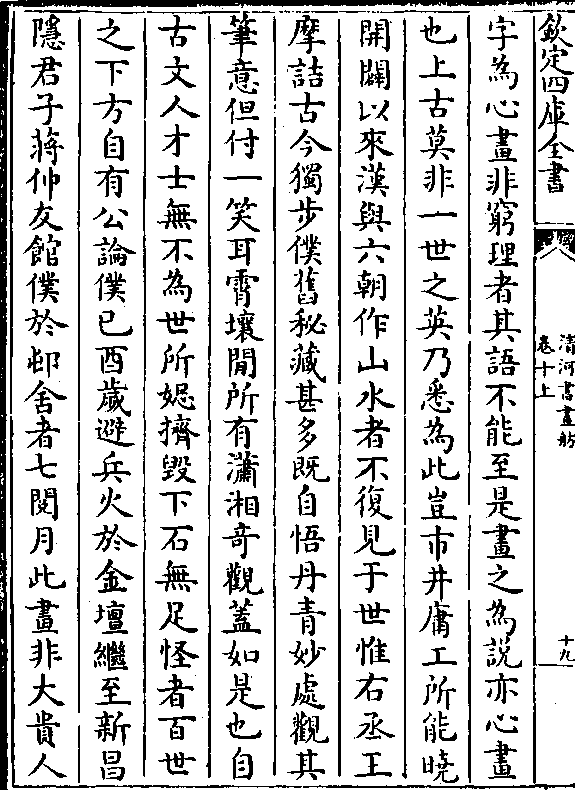 欽定四庫全書
清河書畫舫
卷十上
十九
字為心畫非窮理者其語不能至是畫之為說亦心畫
也上古莫非一世之英乃悉為此豈市井庸工所能曉
開闢以來漢與六朝作山水者不復見于世惟右丞王
摩詰古今獨步僕舊秘藏甚多既自悟丹青妙處觀其
筆意但付一笑耳霄壤閒所有瀟湘奇觀蓋如是也自
古文人才士無不為世所娓擠毀下石無足怪者百世
之下方自有公論僕己酉歲避兵火於金壇繼至新昌
隱君子蔣仲友館僕於邨舍者七閱月此畫非大貴人